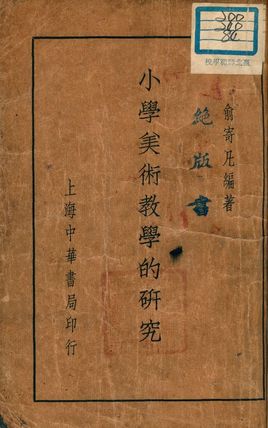 臺北師範學校
俞寄凡編著
絕版書
小學美術教學的研究
上海中華書局印行